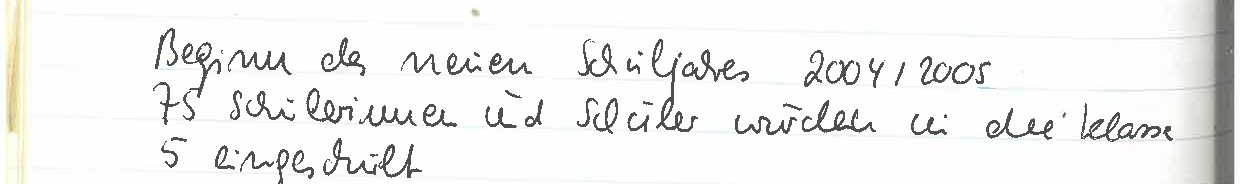 Beginn des neuen Schuljahres 2004/2005
75 Schülerinnen und Schüler wurden in die Klasse
5 eingeschult